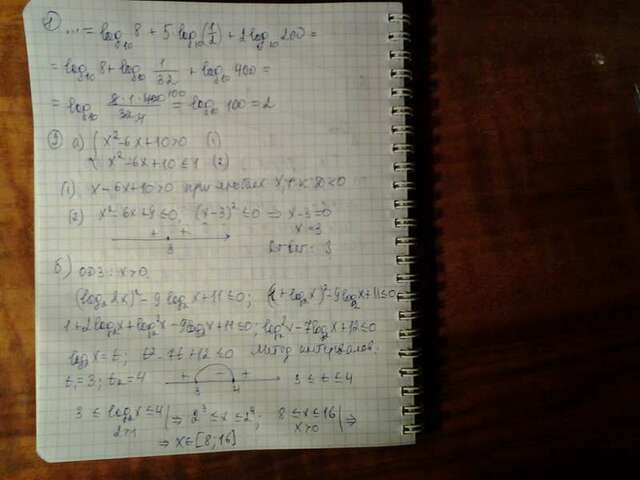 1) ... = log₁₀ 8 + 5 log₁₀ (1/2) + 2 log₁₀ 200 =
= log₁₀ 8 + log₁₀ 1/32 + log₁₀ 400 =
= log₁₀ (8·1·400 100)/(32·4) = log₁₀ 100 = 2
а) { x² - 6x + 10 > 0 (1)
{ x² - 6x + 10 ≤ 1 (2)
(1) x - 6x + 10 > 0 при любых x, т.к. D < 0
(2) x² - 6x + 9 ≤ 0; (x-3)² ≤ 0 ⇒ x - 3 = 0
+ + x = 3
3 Ответ: 3
б) ОДЗ: x > 0
(log₂ 2x)² - 9 log₂ x + 11 ≤ 0; (1 + log₂ x)² - 9 log₂ x + 11 ≤ 0
1 + 2 log₂ x + log₂² x - 9 log₂ x + 11 ≤ 0; log₂² x - 7 log₂ x + 12 ≤ 0
log₂ x = t; t² - 7t + 12 ≤ 0 Метод интервалов.
t₁ = 3; t₂ = 4 + - + 3 ≤ t ≤ 4
3 4
3 ≤ log₂ x ≤ 4 | ⇒ 2³ ≤ x ≤ 2⁴; 8 ≤ x ≤ 16 | ⇒
2 > 1 x > 0
⇒ x ∈ [8; 16]